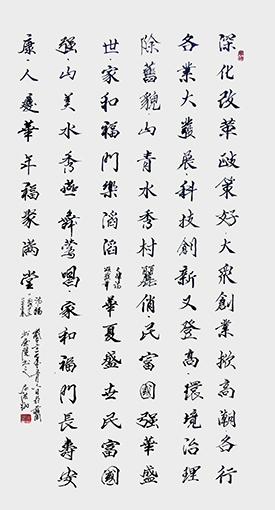 深化改革政策好大众創業掀高潮各行
各業大發展科技創新又登高環境治理
除舊貌山青水秀村麗俏民富國强華盛
世家和福門樂滔滔華夏盛世民富國
强山美水秀燕舞鶯鳴家和福門長壽安
康人延華年福聚滿堂